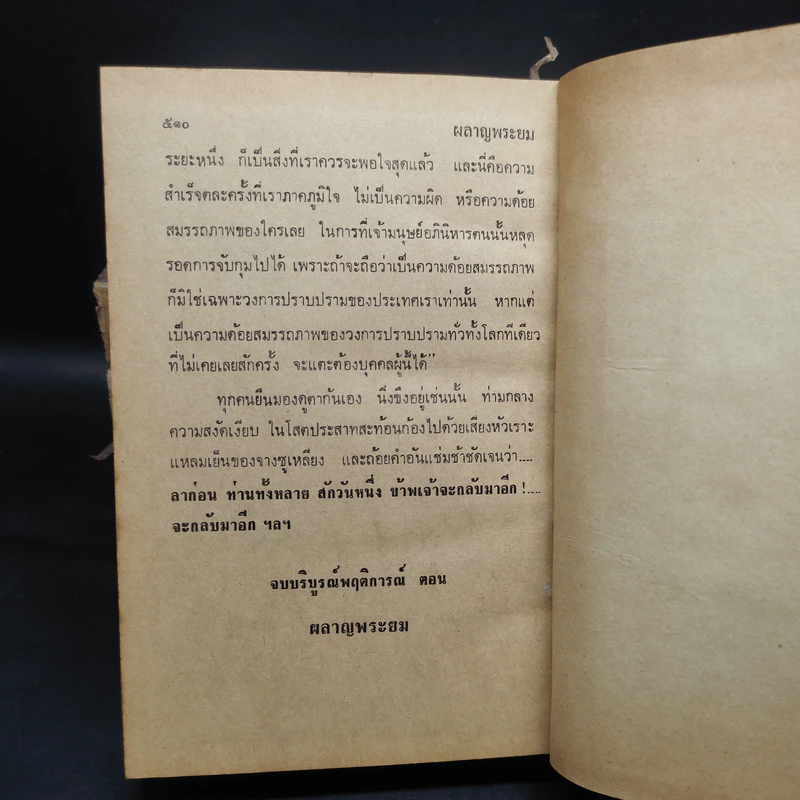 ๕๑๐
ผลาญพระยม
ระยะหนึ่ง ก็เป็นสิ่งที่เราควรจะพอใจสุดแล้ว และนี่คือความ
สำเร็จตละครั้งที่เราภาคภูมิใจ ไม่เป็นความผิด หรือความด้อย
สมรรถภาพของใครเลย ในการที่เจ้ามนุษย์อภินิหารตนนั้นหลุด
รอดการจับกุมไปได้ เพราะถ้าจะถือว่าเป็นความด้อยสมรรถภาพ
ก็มิใช่เฉพาะวงการปราบปรามของประเทศเราเท่านั้น หากแต่
เป็นความด้อยสมรรถภาพของวงการปราบปรามทั่วทั้งโลกทีเดียว
ที่ไม่เคยเลยสักครั้ง จะแตะต้องบุคคลผู้นี้ได้”
ทุกคนยืนมองดูตากันเอง นิ่งขึงอยู่เช่นนั้น ท่ามกลาง
ความสงัดเงียบ ในโสตประสาทสะท้อนก้องไปด้วยเสียงหัวเราะ
แหลมเย็นของจางซูเหลียง และถ้อยคำอันแช่มช้าชัดเจนว่า....
ลาก่อน ท่านทั้งหลาย สักวันหนึ่ง ข้าพเจ้าจะกลับมาอีก !....
จะกลับมาอีก ฯลฯ
จบบริบูรณ์พฤติการณ์ ตอน
ผลาญพระยม